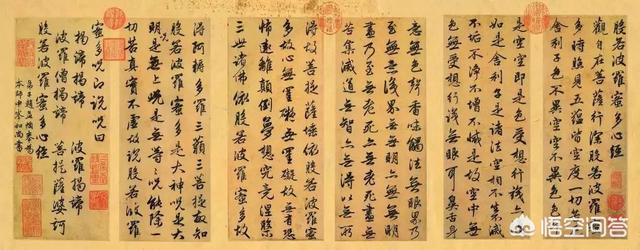 般若波羅蜜多心經
觀自在菩薩行深般若波羅蜜
多時照見五蘊皆空度一切苦
厄舍利子色不異空空不異色色
即是空空即是色受想行識亦復
如是舍利子是諸法空相不生不滅
不垢不淨不增不減是故空中無
色無受想行識無眼耳鼻舌身
意無色聲香味觸法無眼界乃
至無意識界無無明亦無無明
盡乃至無老死亦無老死盡無
苦集滅道無智亦無得以無所
得故菩提薩埵依般若波羅蜜
多故心無罣礙無罣礙故無有恐
怖遠離顛倒夢想究竟涅槃
三世諸佛依般若波羅蜜多故
得阿耨多羅三藐三菩提故知
般若波羅蜜多是大神咒是大
明咒是無上咒是無等等咒能除一
切苦真實不虛故說般若波羅
蜜多咒即說咒曰
揭諦揭諦 波羅揭諦
波羅僧揭諦 菩提薩婆訶
般若波羅蜜多心經
弟子趙孟頫奉為
本師中峯和尚書
悟空问答